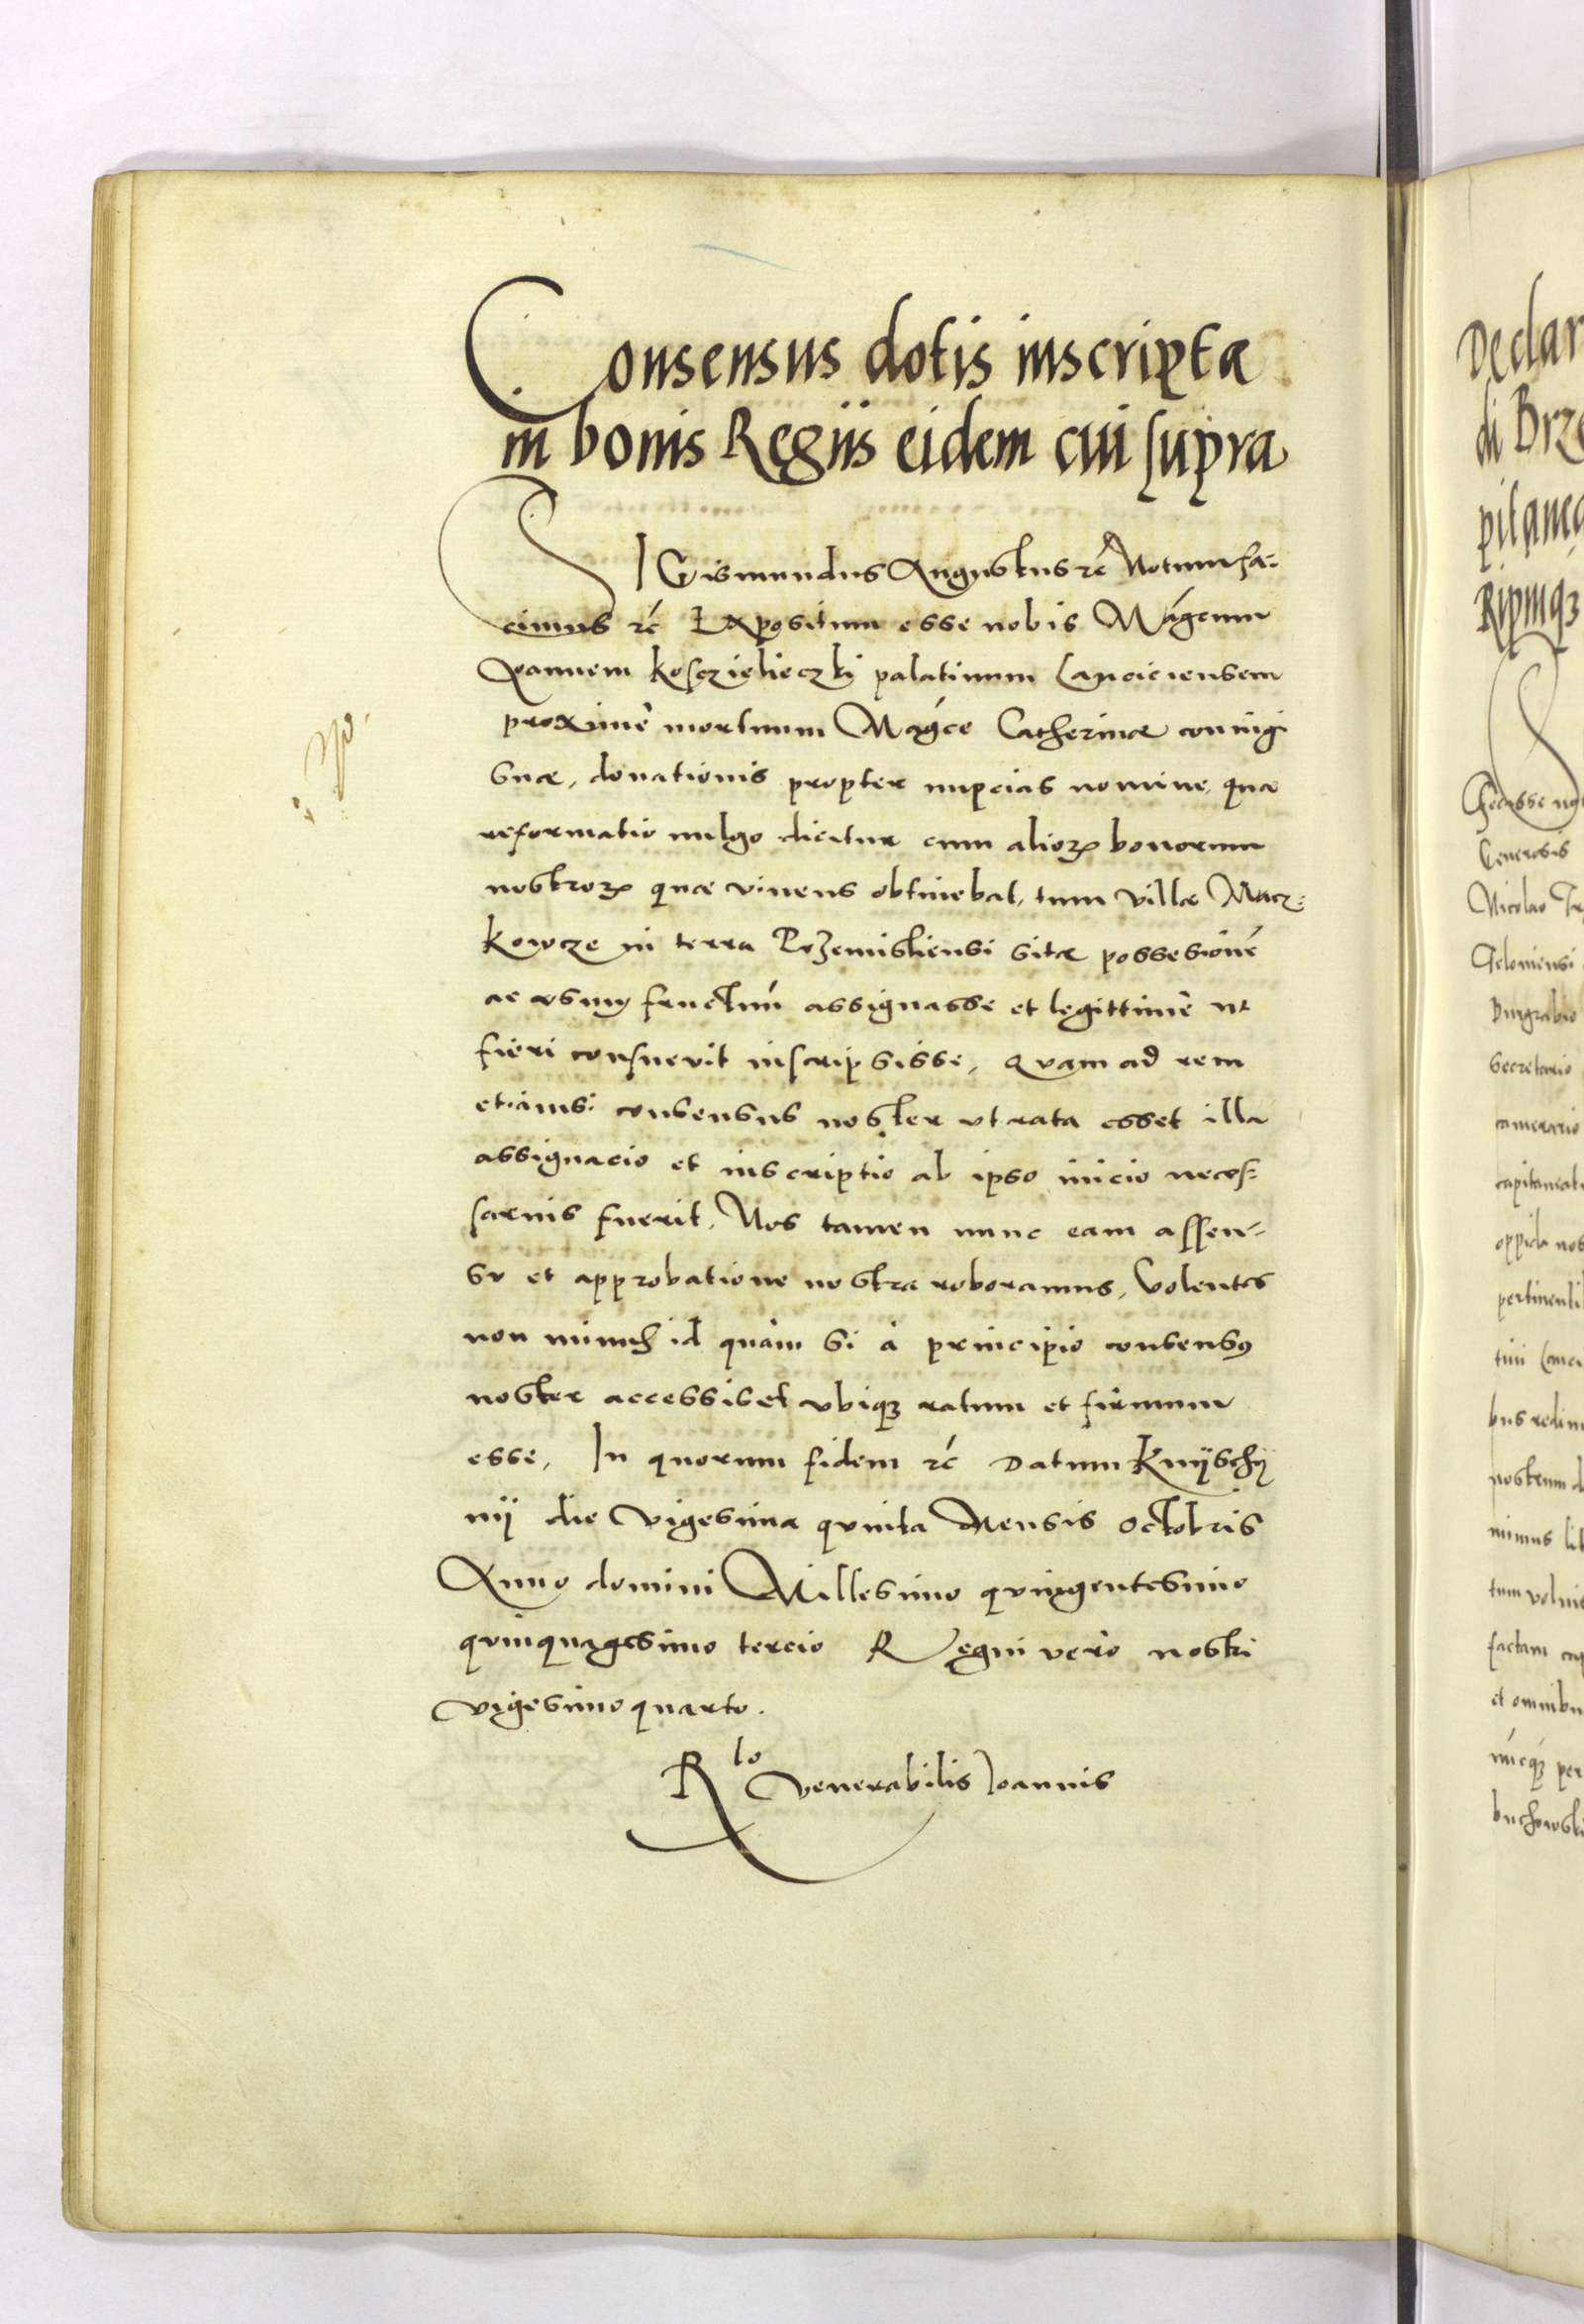 Consensus dotis inscriptæ
in bonis Regiis eidem cui supra
SIGismundus Augustus rć Notum fa-
cimus rć Expositum esse nobis Mágcum
Joannem Kosczielieczki palatinum Lanciciensem
proxime mortuum Mágcæ Catherinæ coniugi
suæ, donationis propter nupcias nomine, quæ
reformatio uulgo dicitur cum alioꝝ bonorum
nostroꝝ quæ viuens obtinebat, tum villæ Macz-
kowcze in terra Przemisliensi sitæ possesionē
ac vsum fructum assignasse et legittime ut
fieri consueuit inscripsisse, Quam ad rem
etiamsi consensus noster vt rata esset illa
assignacio et inscriptio ab ipso inicio neces-
sarius fuerit, Nos tamen nunc eam assen-
su et approbatione nostra roboramus, Volentes
non minus id quàm si à principio consensꝰ
noster accessisset vbiqꝫ ratum et firmum
esse, In quorum fidem rć Datum Knÿschÿ
nij die vigesima quinta Mensis Octobris
Anno domini Millesimo quingentesimo
quinquagesimo tercio Regni vero nostri
vigesimo quarto.
Rlo Venerabilis Joannis
Declar
di Brze
pitanea
Ripinqꝫ
S
Generosis
Nicolao
Burgrabio
secretario
camerario
capitaneat
oppida nos
pertinenti
bus redim
nostrum
nimus
tum volui
factam
et omnibu
per